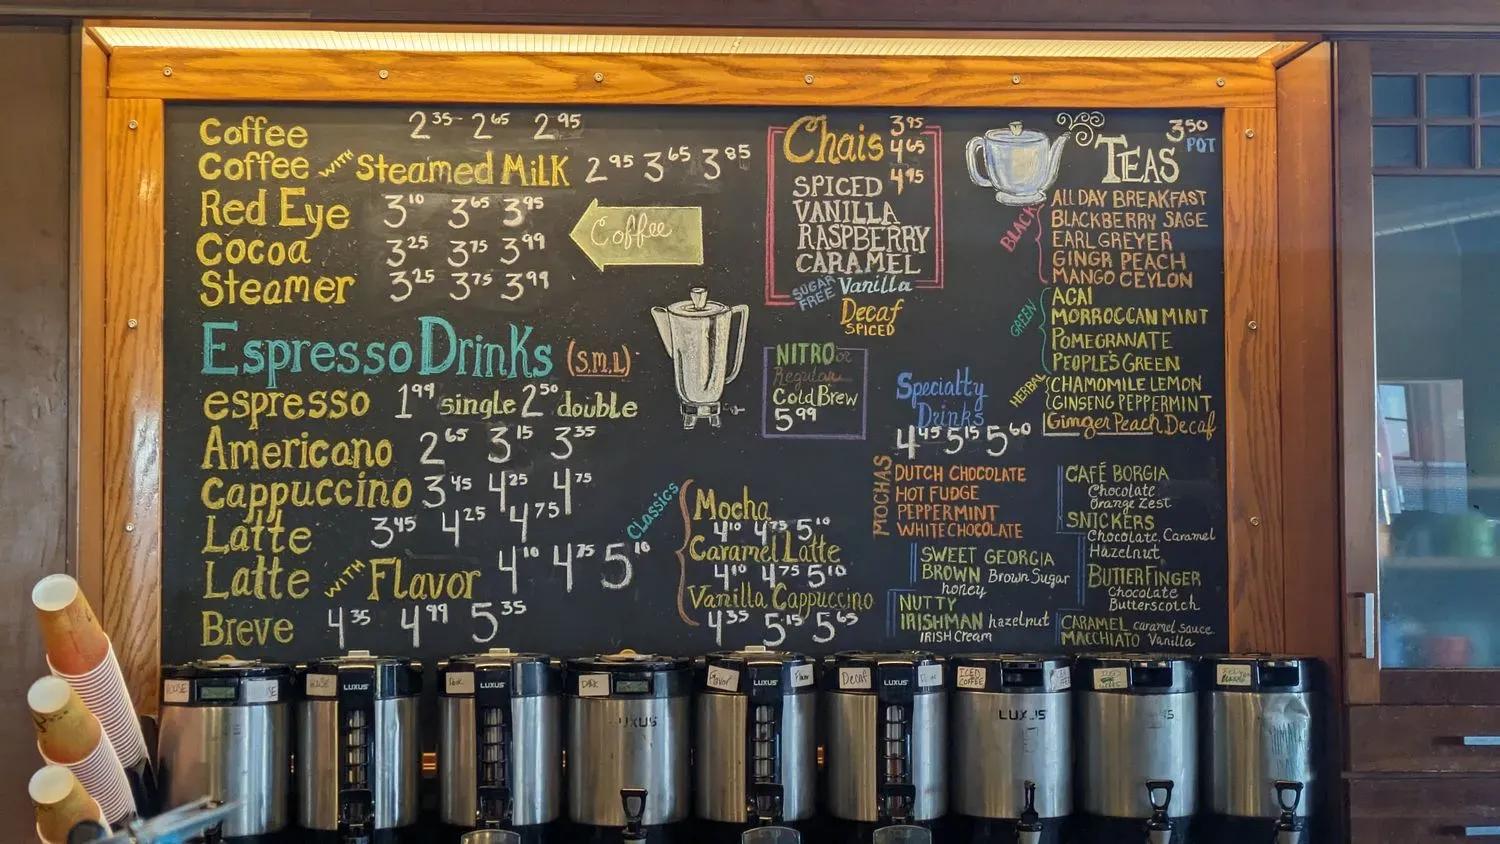 Coffee 2.35 2.65 2.95
Coffee with Steamed Milk 2.95 3.65 3.85
Red Eye 3.10 3.65 3.95
Cocoa 3.25 3.75 3.99
Steamer 3.25 3.75 3.99
Coffee
Espresso Drinks (S.M.L)
espresso 1.99 single 2.50 double
Americano 2.65 3.15 3.35
Cappuccino 3.45 4.25 4.75
Latte 3.45 4.25 4.75
Latte with Flavor 4.10 4.75 5.10
Breve 4.35 4.99 5.35
Classics
Mocha
4.10 4.75 5.10
Caramel Latte
4.10 4.75 5.10
Vanilla Cappuccino
4.35 5.15 5.65
Chais 3.95
4.65
4.95
SPICED
VANILLA
RASPBERRY
CARAMEL
SUGAR FREE Vanilla
Decaf
SPICED
NITRO or
Regular
Cold Brew
5.99
Specialty
Drinks
4.45 5.15 5.60
MOCHAS
DUTCH CHOCOLATE
HOT FUDGE
PEPPERMINT
WHITE CHOCOLATE
SWEET GEORGIA
BROWN Brown Sugar
honey
NUTTY
IRISHMAN hazelnut
IRISH Cream
CAFÉ BORGIA
Chocolate
Orange Zest
SNICKERS
Chocolate, Caramel
Hazelnut
BUTTERFINGER
Chocolate
Butterscotch
CARAMEL caramel sauce
MACCHIATO Vanilla
TEAS 3.50 POT
BLACK
ALL DAY BREAKFAST
BLACKBERRY SAGE
EARL GREYER
GINGR PEACH
MANGO CEYLON
GREEN
ACAI
MORROCCAN MINT
POMEGRANATE
PEOPLE'S GREEN
HERBAL
CHAMOMILE LEMON
GINSENG PEPPERMINT
Ginger Peach Decaf
HOUSE
HOUSE
LUXUS
DARK
LUXUS
DARK
LUXUS
Flavor
LUXUS
Flavor
Decaf
LUXUS
ICED COFFEE
LUXUS